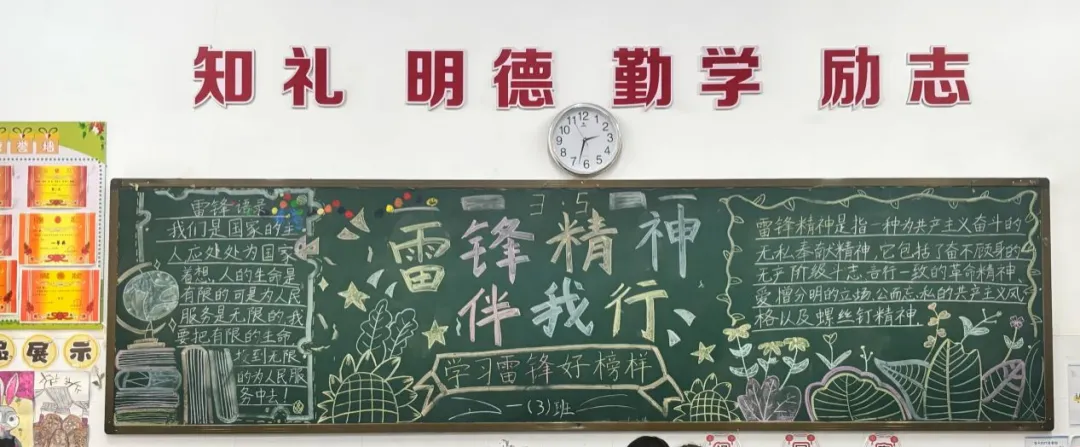 知礼 明德 勤学 励志
12
1
2
3
4
5
6
7
8
9
10
11
3.5
雷锋精神
伴我行
学习雷锋好榜样
一(3)班
雷锋语录
我们是国家的主
人应处处为国家
着想，人的生命是
有限的可是为人民
服务是无限的，我
要把有限的生命
投到无限
的为人民服
务中去！
雷锋精神是指一种为共产主义奋斗的
无私奉献精神，它包括了奋不顾身的
无产阶级斗志，言行一致的革命精神，
爱憎分明的立场，公而忘私的共产主义风
格以及螺丝钉精神，
品展示